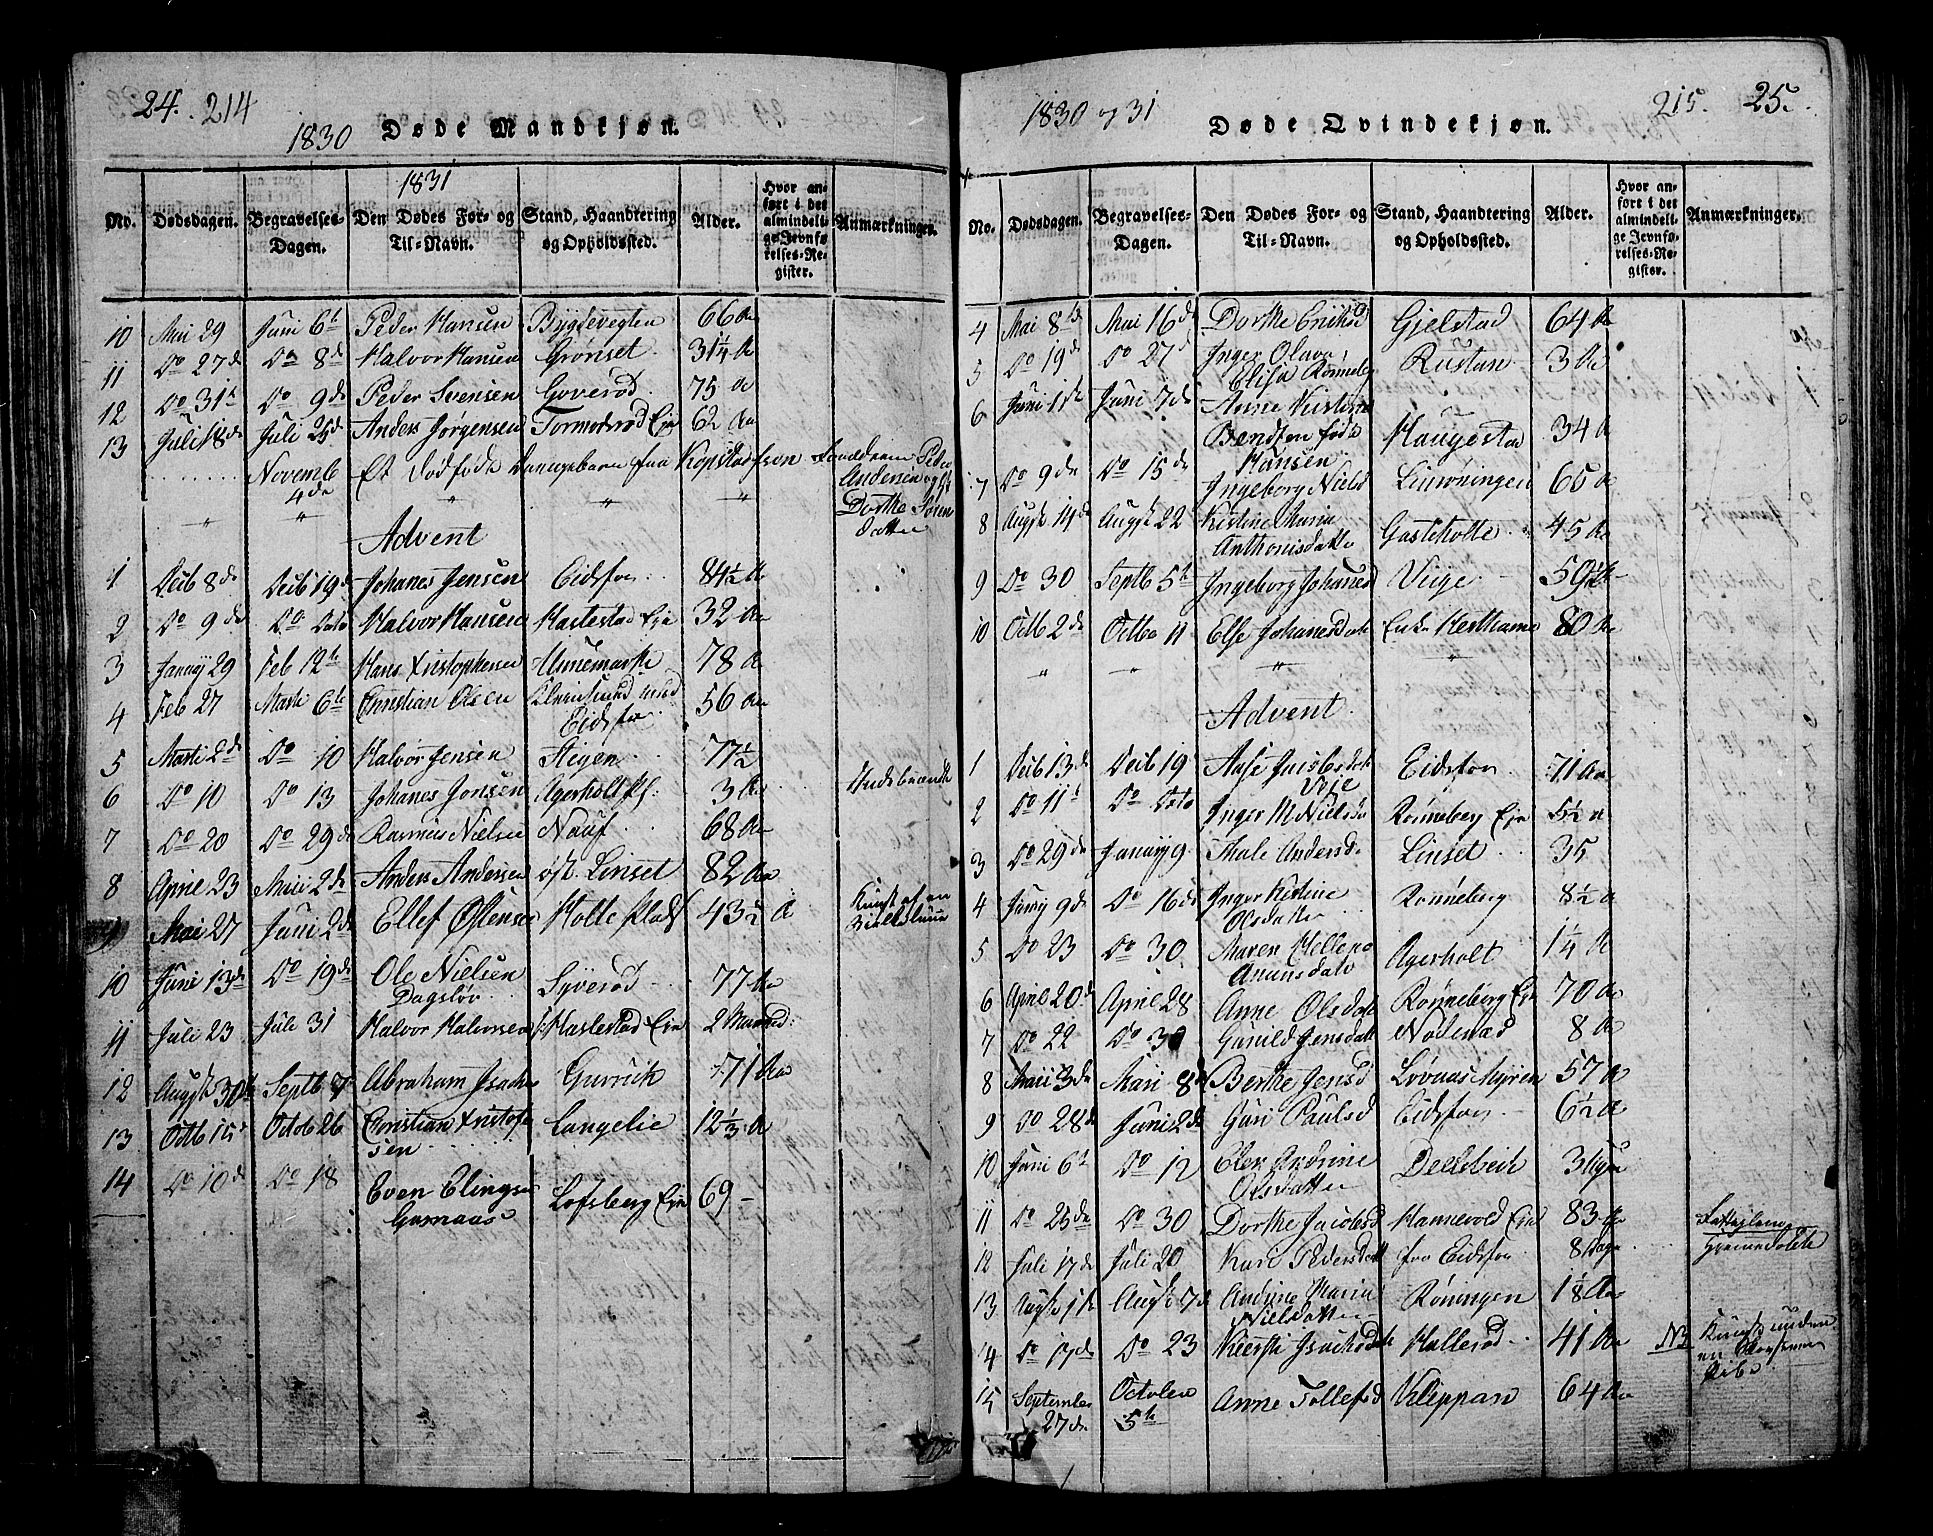 24. 214
1830 Døde Mandkjøn.
1831
No. Dødsdagen. Begravelses-Dagen. Den Dødes For- og Til-Navn. Stand, Haandtering og Opholdssted. Alder. Hvor anført i det almindelige Jevnførelses-Register. Anmærkninger.
10 Mai 29 Juni 6te Peder Hansen Bygdevegten 66 Aar
11 Do 27de Do 8de Halvor Hansen Grønset 31¼ A
12 Do 31te Do 9de Peder Svensen Goverød 75 A
13 Juli 18de Juli 25de Anders Jørgensen Tormodsrød Eje 62 Aar
Novemb 4de Et dødfødt Drengebarn fra Kopstad Peder
Andersen og
Dorthe Søren
datter
Advent
1 Decb 8de Decb 19de Johanes Jensen Eidsfos 84½ A
2 Do 9de Do Dato Halvor Hansen Eje 32 Aar
3 Janury 29 Feb 12te Hans Kristophersen 78 A
4 Feb 27 Marti 6te Christian Olsen
Eidsfos 56 Aar
5 Marti 2de Do 10 Halvor Jensen 77½
6 Do 10 Do 13 Johanes Jonsen Agerholt Pl. 3 A
7 Do 20 Do 29de Rasmus Nielsen Nauf 68 Aar
8 April 23 Maii 2de Anders Andersen øst. Linset 82 Aar
Mai 27 Juni 2de Ellef Østensen Holte Plads 43½ A
10 Juni 13de Do 19de Ole Nielsen
Dagsløv Syverød 77 Aar
11 Juli 23 Juli 31 Halvor Halvorsen Haslestad Eje 2 Maaned:
12 Augst 30te Septb 7 Abraham Isachs Gurrick 71 Aar
13 Octb 15de Octob 26 Christian Kristofer
sen Langelie 12⅓ A
14 Do 10de Do 18 Even Elingsen
Lofsberg Eje 69
1830 og 31 Døde Qvindekjøn. 215. 25.
No. Dødsdagen. Begravelses-Dagen. Den Dødes For- og Til-Navn. Stand, Haandtering og Opholdssted. Alder. Hvor anført i det almindelige Jevnførelses-Register. Anmærkninger.
4 Mai 8de Mai 16de Dorthe Eriksd Gjelstad 64 A
5 Do 19de Do 27de Inger Olava
Elisa Rønneberg Rustan 3 A
6 Juni 1de Juni 7de Anne Kirstine
Bendsen født
Hansen Haugestad 34 A
7 Do 9de Do 15de Ingeborg Nielsd 60 A
8 Augst 14de Augst 22 Kirstine Maria
Anthonisdatter Gasteholte 45 A
9 Do 30 Septb 5te Ingeborg Johanesd Veige 59½ A
10 Octb 2de Octbe 11 Else Johanesdat Enke 80 A
Advent
1 Decb 13de Decb 19 Aase Jacobsdat
Eidsfos 71 Aar
2 Do 11te Do Dato Inger M Nielsd Rønneberg Eje 5½ A
3 Do 29de Janury 9 Mali Andersd Linset 35
4 Janry 9de Do 16de Inger Kirstine
Olsdatter Rønneberg 8½ A
5 Do 23 Do 30 Maren Hellene
Amunsdatr Agerholt 1¼ A
6 April 20de April 28 Anne Olsdat Rønneberg Eje 70 A
7 Do 22 Do 30 Gunild Jensdatt Nødenæs 8 A
8 Maii 3de Maii 8de Berthe Jensd Løvaas Myren 57 A
9 Do 28de Juni 2de Guri Paulsd Eidsfos 6½ A
10 Juni 6te Do 12 Elen Andrine
Olsdatter Delebek 3 Uger
11 Do 25de Do 30 Dorthe Jacobsd Hannevold Eje 83 A
12 Juli 17de Juli 20 Kari Pedersdatt fra Eidsfos 8 Dage
13 Augst 1te Augst 7de Andine Maria
Nielsdatter Røningen 1½ Aar
14 Do 17de Do 23 Kiersti Isachsdat Hallerød 41 A NB
15 September
27de October
5te Anne Tollefsd Kleppan 64 A